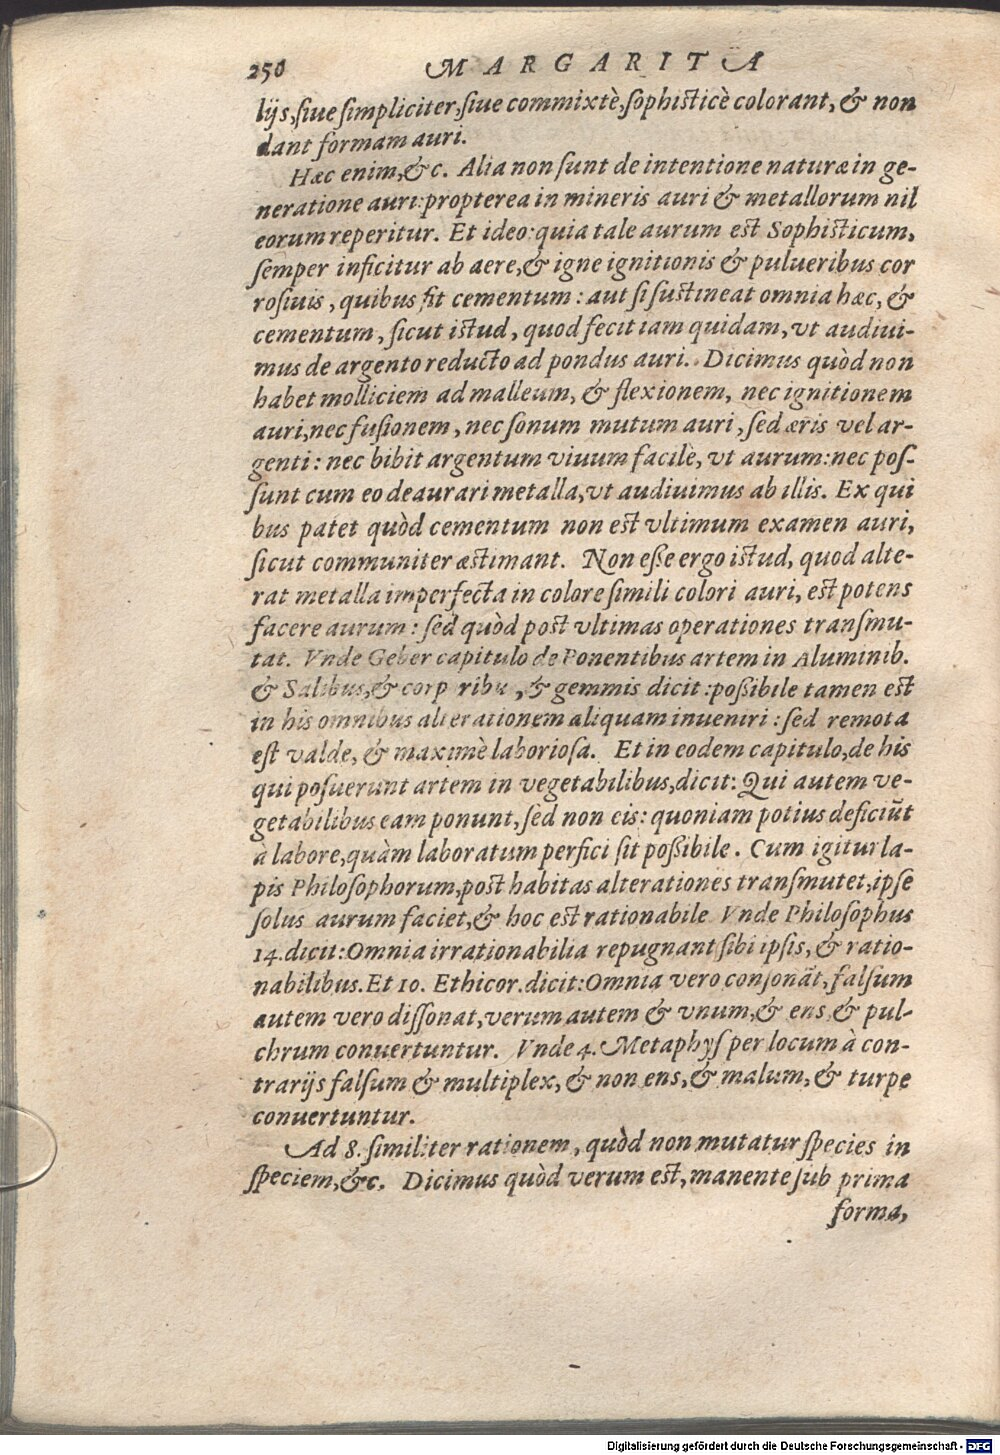 250 MARGARITA
lijs, ſiue ſimpliciter, ſiue commixtè, ſophisticè colorant, & non
dant formam auri.
Hæc enim, &c. Alia non ſunt de intentione naturæ in ge-
neratione auri: propterea in mineris auri & metallorum nil
eorum reperitur. Et ideo: quia tale aurum est Sophisticum,
ſemper inficitur ab aere, & igne ignitionis & pulueribus cor
roſiuis, quibus fit cementum: aut ſi ſustineat omnia hæc, &
cementum, ſicut istud, quod fecit iam quidam, vt audiui-
mus de argento reducto ad pondus auri. Dicimus quòd non
habet molliciem ad malleum, & flexionem, nec ignitionem
auri, nec fuſionem, nec ſonum mutum auri, ſed æris vel ar-
genti: nec bibit argentum viuum facilè, vt aurum: nec poſ-
ſunt cum eo deaurari metalla, vt audiuimus ab illis. Ex qui
bus patet quòd cementum non est vltimum examen auri,
ſicut communiter æstimant. Non eſſe ergo istud, quod alte-
rat metalla imperfecta in colore ſimili colori auri, est potens
facere aurum: ſed quòd post vltimas operationes tranſmu-
tat. Vnde Geber capitulo de Ponentibus artem in Aluminib.
& Salibus, & corp ribu , & gemmis dicit: poßibile tamen est
in his omnibus alterationem aliquam inueniri: ſed remota
eſt valde, & maximè laborioſa. Et in eodem capitulo, de his
qui poſuerunt artem in vegetabilibus, dicit: Qui autem ve-
getabilibus eam ponunt, ſed non eis: quoniam potius deficiūt
à labore, quàm laboratum perfici ſit poßibile. Cum igitur la-
pis Philoſophorum, post habitas alterationes tranſmutet, ipſe
ſolus aurum faciet, & hoc est rationabile Vnde Philoſophus
14. dicit: Omnia irrationabilia repugnant ſibi ipſis, & ratio-
nabilibus. Et 10. Ethicor. dicit: Omnia vero conſonāt, falſum
autem vero diſſonat, verum autem & vnum, & ens, & pul-
chrum conuertuntur. Vnde 4. Metaphyſ per locum à con-
trarijs falſum & multiplex, & non ens, & malum, & turpe
conuertuntur.
Ad 8. ſimiliter rationem, quòd non mutatur ſpecies in
ſpeciem, &c. Dicimus quòd verum est, manente ſub prima
forma,
Digitalisierung gefördert durch die Deutsche Forschungsgemeinschaft - DFG